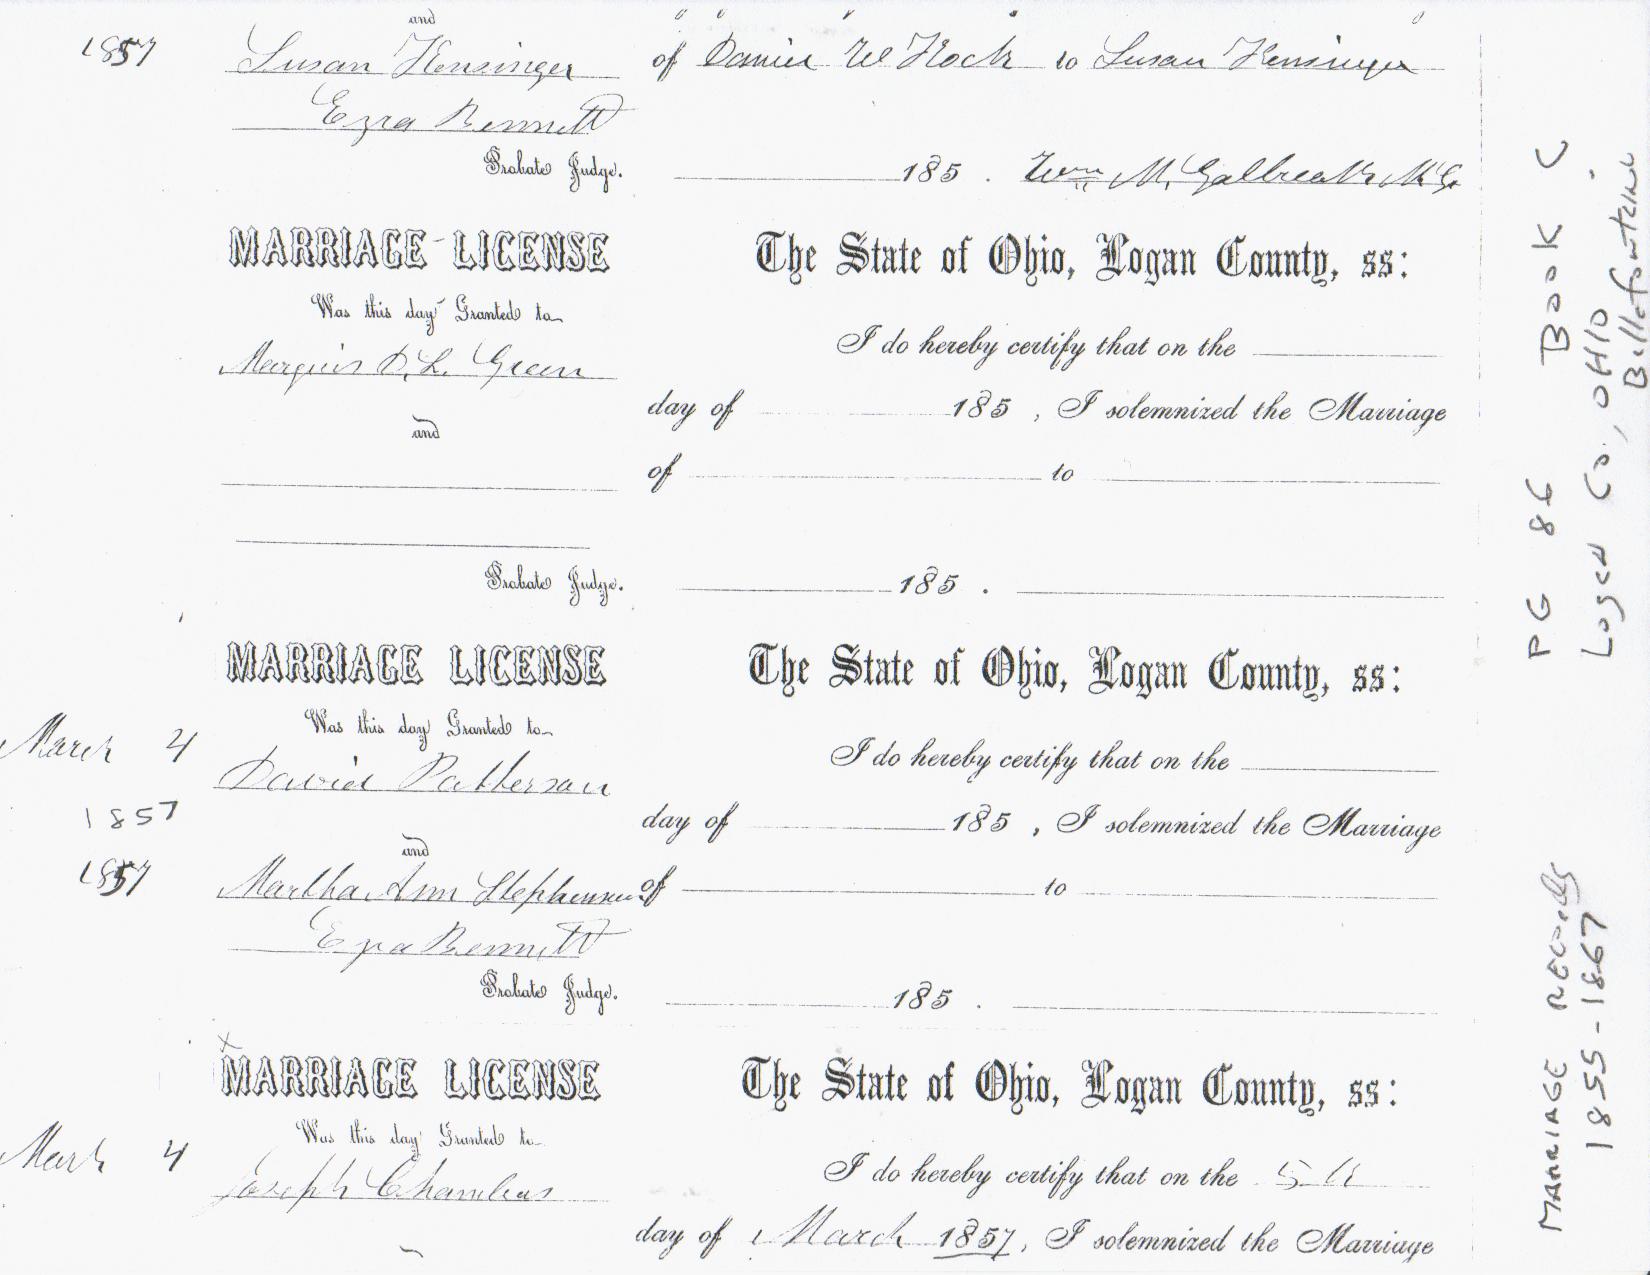 and
1857 Susan Kensinger of Daniel W Hock to Susan Kensinger
Ezra Bennett
Probate Judge. 185 . Wm M. Galbreath
MARRIAGE LICENSE The State of Ohio, Logan County, ss:
Was this day Granted to
I do hereby certify that on the
Marquis D. L. Green
day of 185 , I solemnized the Marriage
and
of to
Probate Judge. 185 .
MARRIAGE LICENSE The State of Ohio, Logan County, ss:
Was this day Granted to
March 4 I do hereby certify that on the
David Patterson
1857 day of 185 , I solemnized the Marriage
and
1857 Martha Ann Stephenson of to
Ezra Bennett
Probate Judge. 185 .
x
MARRIAGE LICENSE The State of Ohio, Logan County, ss:
Was this day Granted to
March 4 I do hereby certify that on the 5th
Joseph Chambers
day of March 1857, I solemnized the Marriage
PG 86 BOOK C
Logan Co., OHIO
Bellefontaine
MARRIAGE RECORDS
1855-1867